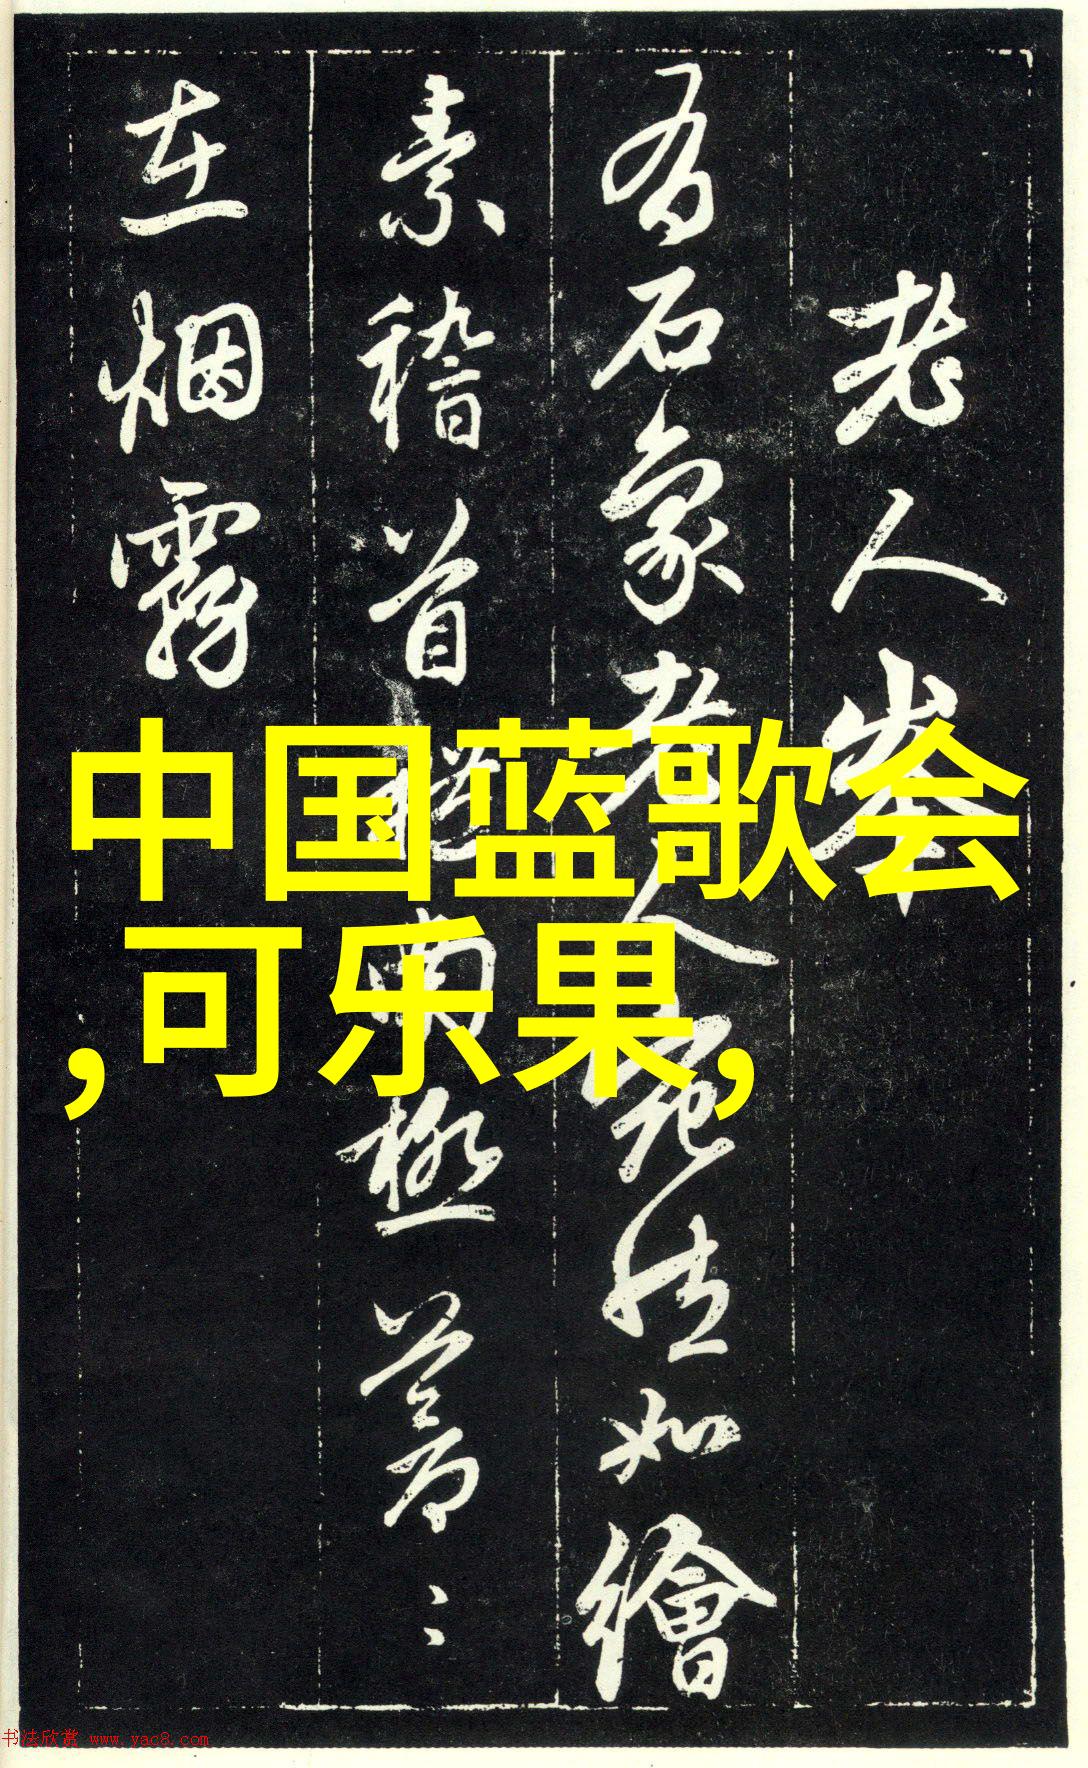 老人峯
有石象老人宛如繪
素稽首南極蒼〻
在烟霧
中国蓝歌会
,可乐果,
书法欣赏 www.yac8.com